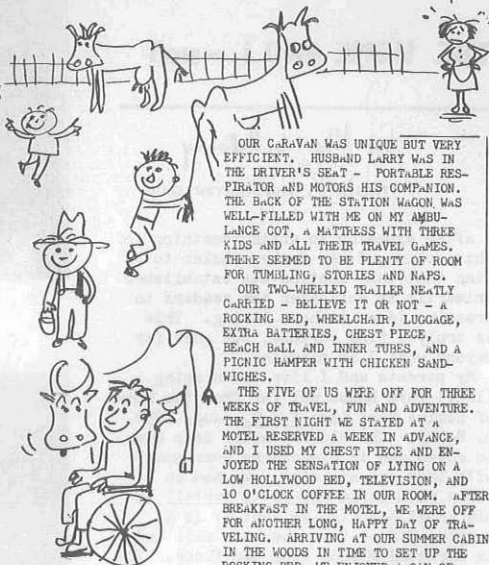 OUR CARAVAN WAS UNIQUE BUT VERY
EFFICIENT. HUSBAND LARRY WAS IN
THE DRIVER'S SEAT - PORTABLE RES-
PIRATOR AND MOTORS HIS COMPANION.
THE BACK OF THE STATION WAGON WAS
WELL-FILLED WITH ME ON MY AMBU-
LANCE COT, A MATTRESS WITH THREE
KIDS AND ALL THEIR TRAVEL GAMES.
THERE SEEMED TO BE PLENTY OF ROOM
FOR TUMBLING, STORIES AND NAPS.
OUR TWO-WHEELED TRAILER NEATLY
CARRIED - BELIEVE IT OR NOT - A
ROCKING BED, WHEELCHAIR, LUGGAGE,
EXTRA BATTERIES, CHEST PIECE,
BEACH BALL AND INNER TUBES, AND A
PICNIC HAMPER WITH CHICKEN SAND-
WICHES.
THE FIVE OF US WERE OFF FOR THREE
WEEKS OF TRAVEL, FUN AND ADVENTURE.
THE FIRST NIGHT WE STAYED AT A
MOTEL RESERVED A WEEK IN ADVANCE,
AND I USED MY CHEST PIECE AND EN-
JOYED THE SENSATION OF LYING ON A
LOW HOLLYWOOD BED, TELEVISION, AND
10 O'CLOCK COFFEE IN OUR ROOM. AFTER
BREAKFAST IN THE MOTEL, WE WERE OFF
FOR ANOTHER LONG, HAPPY DAY OF TRA-
VELING. ARRIVING AT OUR SUMMER CABIN
IN THE WOODS IN TIME TO SET UP THE